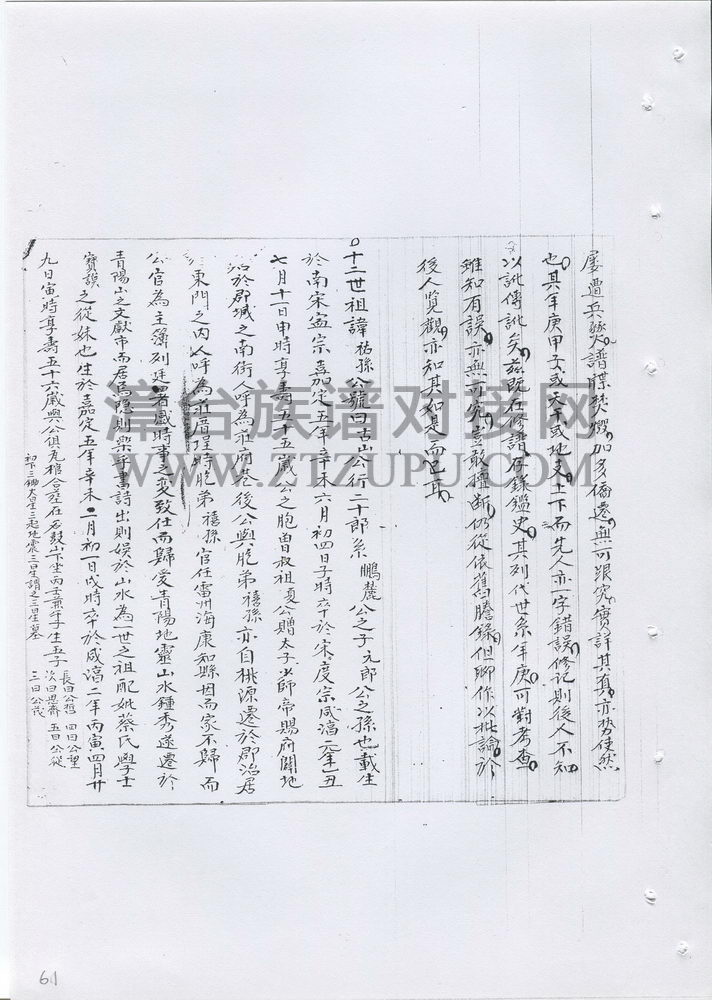 屡遭兵燹譜牒焚燬加多僑遷無可跟究實詳其真亦势使然
也其年庚甲子或天干或地支上下而先人亦一字錯誤修記則後人不知
以訛傳訛矣茲既在修譜存錄鑑史其列代世系年庚可對考查
雖知有誤亦無可究豈敢擅斷仍從依舊謄錄但聊作以批論於
後人覽觀亦知其如是而已耳
十二世祖諱祐孫公號古山公行二十郎系鵬麓公之子元郎公之孫也載生
於南宋寧宗嘉定五年辛未六月初四日子時卒於宋度宗咸淳元年乙丑
七月十一日申時享壽五十五歲公之胞曽叔祖夏公贈太子少師帝賜府闢地
於郡城之南街人呼為莊府巷後公與胞弟禧孫亦自桃源遷於郡治居
東門之内人呼為莊厝埕時胞弟禧孫官任雷州海康知縣因而家不歸而
公官為主簿列廷署感時事之变致仕而歸愛青陽地靈山水鍾秀遂遷於
青陽山之文獻市而居焉隱則樂乎書詩出則娱於山水為一世之祖配妣蔡氏學士
寶謨之從妹也生於嘉定五年辛未二月初一日戌時卒於咸淳二年丙寅四月廿
九日寅時享壽五十六歲與公俱瓦棺合葬在石鼓山下坐丙壬兼子生五子
長曰公哲 四曰公望
次曰思齋 五曰公從
三曰公茂
初下三鋤大日生三起地震三日生謂之三日生墓
滿台族谱对接网
WWW.ZTZUPU.COM
61